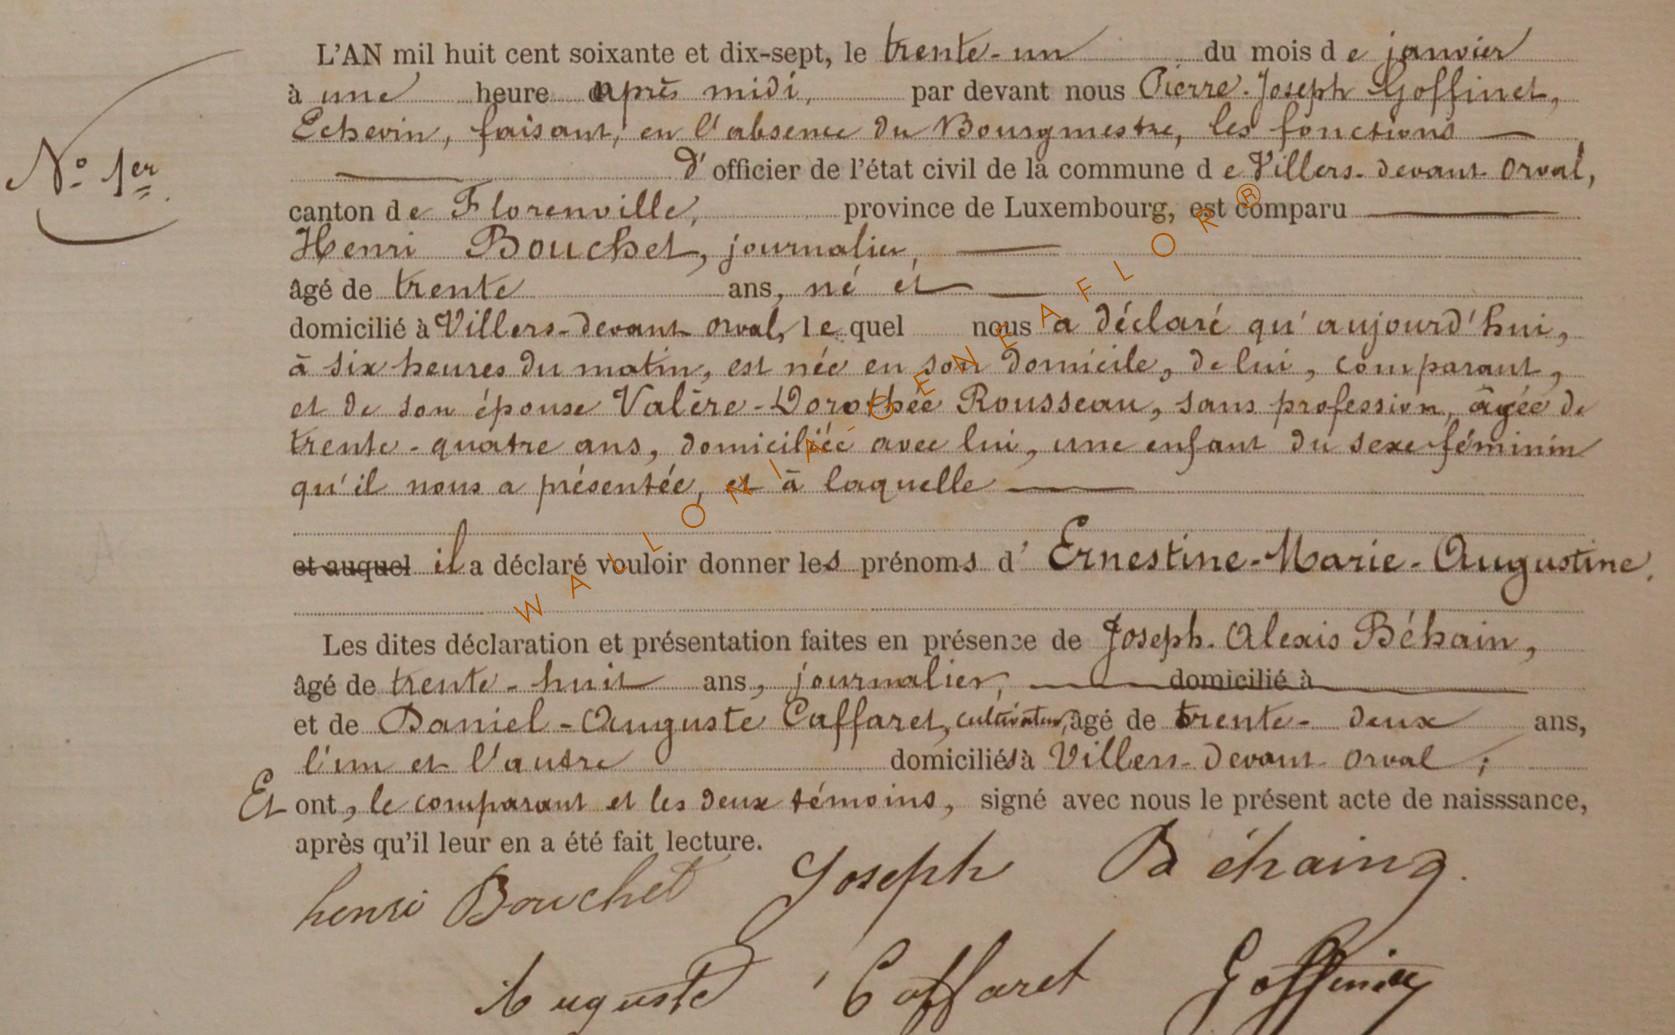 L'AN mil huit cent soixante et dix-sept, le trente-un du mois de janvier
à une heure après midi, par devant nous Pierre-Joseph Goffinet,
Echevin, faisant, en l'absence du Bourgmestre, les fonctions
N.o 1er.
d'officier de l'état civil de la commune de Villers-devant-Orval,
canton de Florenville, province de Luxembourg, est comparu
Henri Bouchet, journalier,
âgé de trente ans, né et
domicilié à Villers-devant-Orval, lequel nous a déclaré qu'aujourd'hui,
à six heures du matin, est née en son domicile, de lui, comparant,
et de son épouse Valère-Dorothée Rousseau, sans profession, âgée de
trente-quatre ans, domiciliée avec lui, une enfant du sexe féminin
qu'il nous a présentée, et à laquelle
et auquel il a déclaré vouloir donner les prénoms d'Ernestine-Marie-Augustine.
Les dites déclaration et présentation faites en présence de Joseph-Alexis Béhain,
âgé de trente-huit ans, journalier, domicilié à
et de Daniel-Auguste Caffaret, cultivateur, âgé de trente-deux ans,
l'un et l'autre domiciliés à Villers-devant-Orval ;
Et ont, le comparant et les deux témoins, signé avec nous le présent acte de naisssance,
après qu'il leur en a été fait lecture.
henri Bouchet Joseph Béhaing.
Auguste Caffaret Goffinet
WALLONIA-GENEAFLOR®